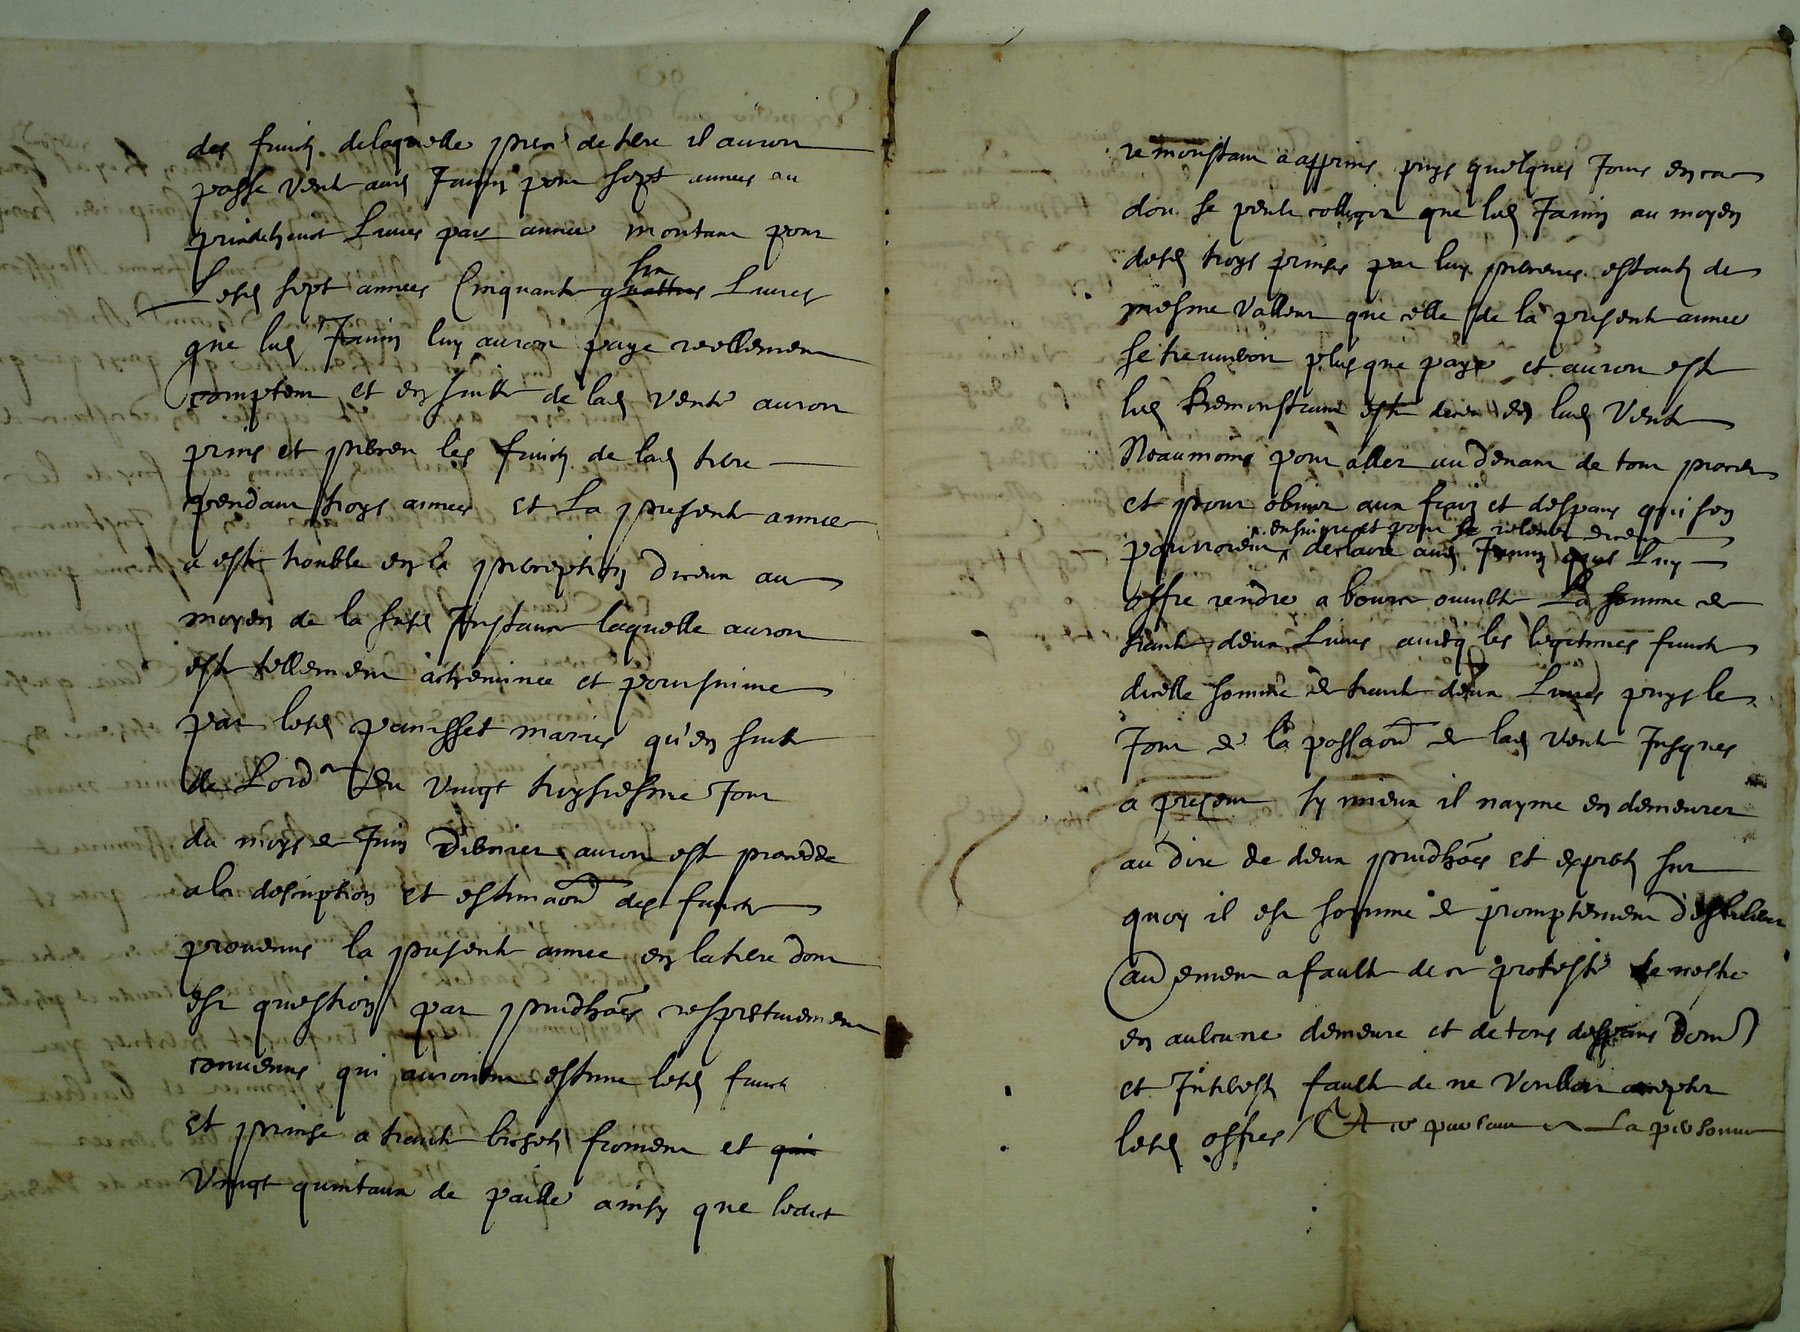 des fruictz de laquelle piece de terre il auroit
passé vente aud Janin pour sept annees au
pris de huict Livres par annee montant pour
Lesd sept annees Cinquante quattre six Livres
que led Janin luy auroit payé reellement
comptent et en suitte de lad vente auroit
prins et perceu les fruictz de lad terre
pendant troys annees et La presente annee
a esté troublé en la perception diceux au
moyen de la susd Instance laquelle auroit
esté tellement acheminee et poursuivie
par lesd panisset maries qu'en suitte
de Lordce du vingt troysiesme Jour
du moys de Juin dernier auroit esté procedde
a la description et estimaon des fruictz
provenus la presente annee en la terre dont
est question par prudhoes respectivement
convenus qui auroient estimé lesd fruictz
et prinse a trante bichetz froment et
vingt quintaux de paille ainsy que ledict
remonstant a apprins puys quelques Jours en ca
dou se peult colliger que led Janin au moyen
desd troys prinses par luy perceues estantz de
mesme valleur que celle de la presente annee
se treuveroit plus que payé et auroit esté
led Remonstant esté deceu en lad vente
Neaumoins pour aller au devant de tout proces
et pour obvier aux fraiz et despans qui sen
pourroient ensuivre et pour se relever diceux
declaire aud Janin quil Luy
offre rendre a bource ouverte La somme de
trante deux Livres avecq les legitimes fruictz
dicelle somme de trante deux Livres puys le
Jour de la passaon de lad vente Jusques
a present sy mieux il nayme en demeurer
au dire de deux prudhoes et expertz sur
quoy il est sommé de promptement deslibere
autrement a faulte de ce proteste de nestre
en aulcune demeure et de tous despans dom
et Interestz faulte de ne voulloir accepter
lesd offres Et ce parlant a La personne